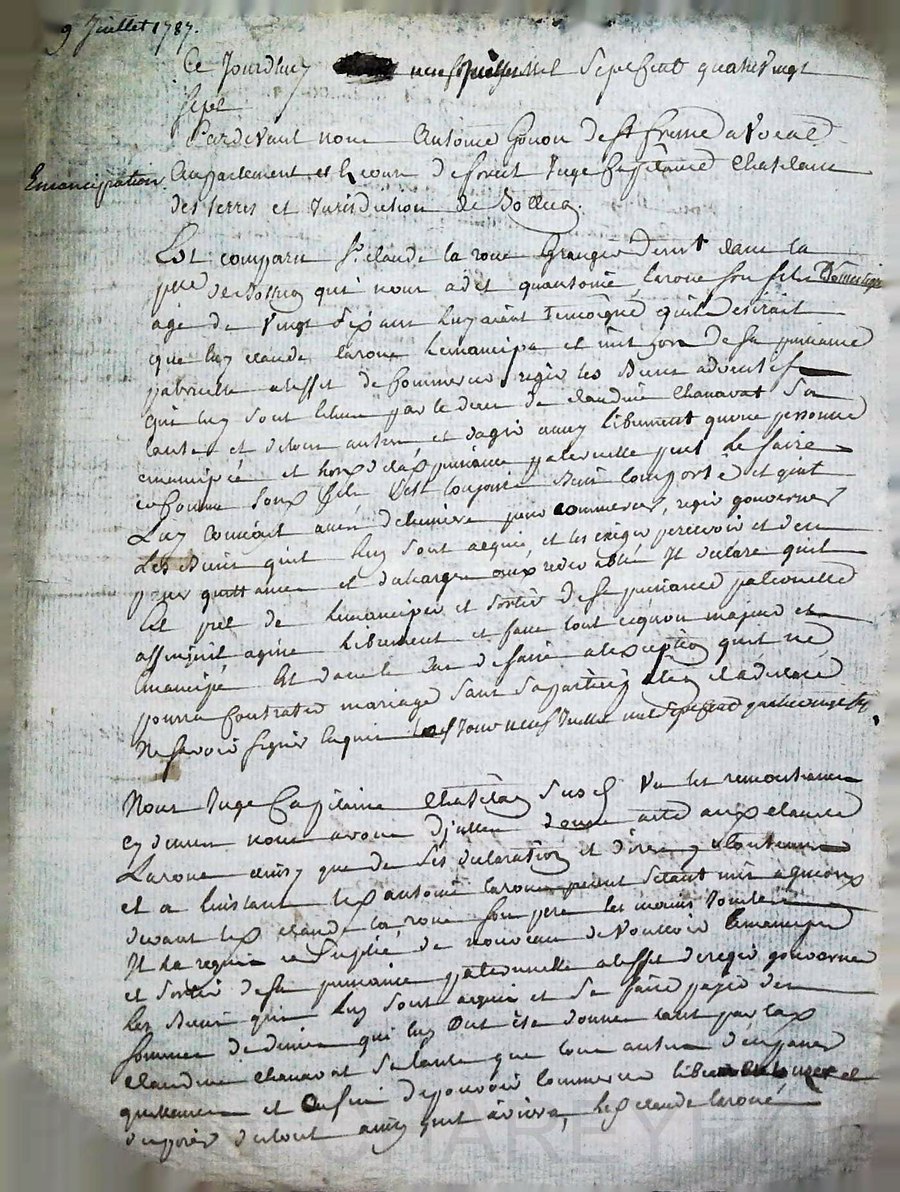 9 Juillet 1787.
Ce Jourdhuy neuf juillet mil sept cent quatre vingt
sept
Pardevant nous Antoine Gonon de St frenne avocat
Emancipation
Au parlement et la cour de forest Juge Capitaine Chatelain
des terres et Jurisdiction de
Est comparu Sr claude la roue Granger demt dans la
psse de qui nous a dit qu antoine laroue son fils
agé de vingt six ans luy aient Temoigné quil desirait
que luy claude laroue lemancipa et mit hors de sa puissance
paternelle a leffet de Commercer regir les Biens adventifs
qui luy sont échus par le deces de claudine Chanavat sa
tante et de tous autres et dagir aussy librement quune personne
emancipée et hors de la puissance paternelle peut le faire
et comme son fils sest toujours Bien comporté et quil
Luy connoit assés de lumiere pour commercer, regir gouverner
Les Biens quil luy sont acquis, et les exiger percevoir et den
passer quittance et decharge aux redevables Il declare quil
Est pret de lemanciper et sortir de sa puissance paternelle
affinquil agisse librement et fasse tout ce quun majeur et
Emancipé Est dans le cas de faire a lexception quil ne
pourra Contracter mariage sans sa participation et a déclaré
Ne savoir signer
Nous Juge Capitaine Chatelain susd Vu les remontrances
cy dessus nous avons donné acte audit claude
Laroue ainsy que de ses declarations et
et a linstant led antoine laroue setant mis a genoux
devant led claude la roue son pere les mains jointes
Il la requis et supplié de nouveau de vouloir lemanciper
et sortir de sa puissance paternelle a leffet de regir gouverner
les Biens qui luy sont acquis et se faire payer des
sommes de deniers qui luy ont été donné tant par lad
claudine chanavat sa tante que tous autres den passer
quittances et enfin de pouvoir commercer librement
disposer du tout ainsy quil avisera, led claude laroue